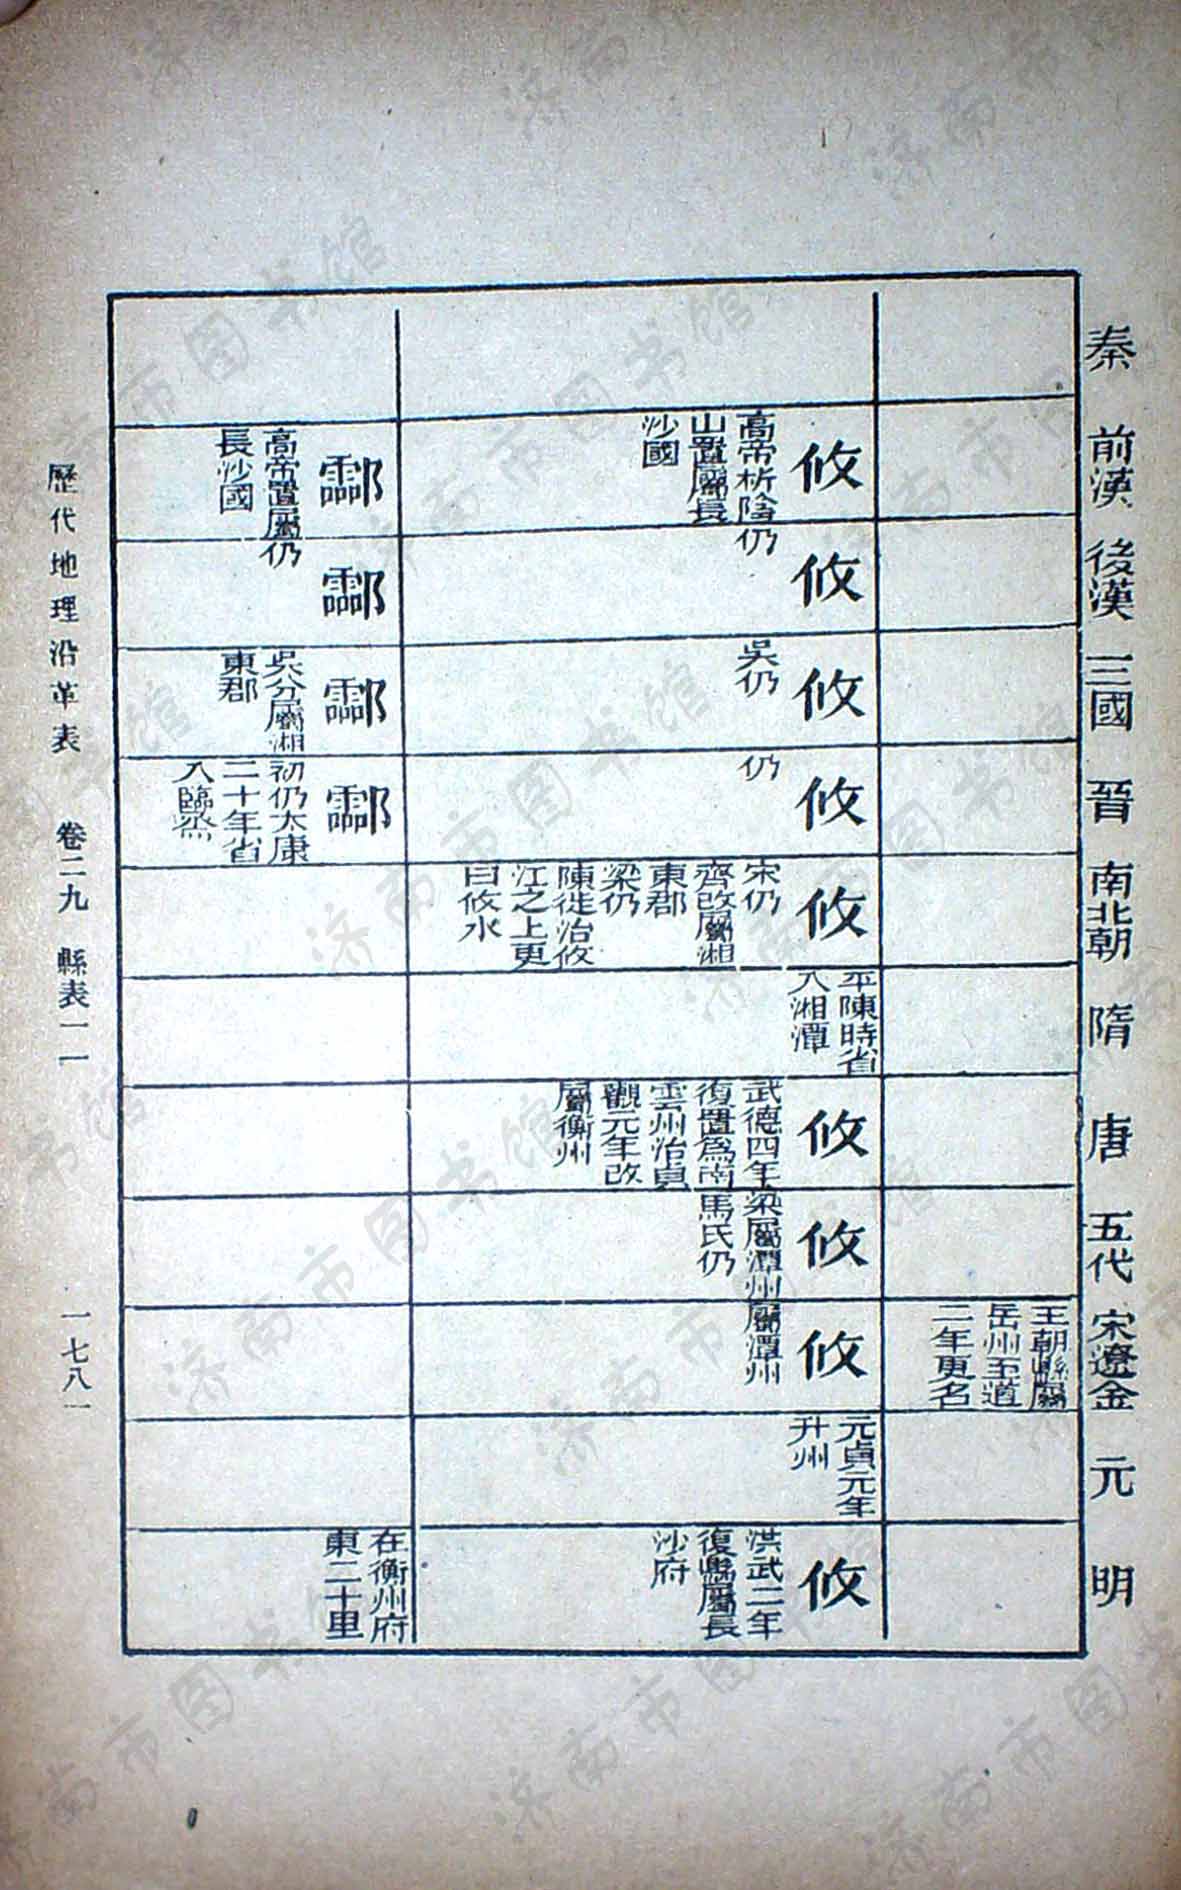 秦
前漢
後漢
三國
晉
南北朝
隋
唐
五代
宋遼金
元
明
王朝縣屬
岳州至道
二年更名
攸
高帝析陰
山置屬長
沙國
攸
仍
攸
吳仍
攸
仍
攸
宋仍
齊改屬湘
東郡
梁仍
陳徙治攸
江之上更
曰攸水
平陳時省
入湘潭
攸
武德四年
復置爲南
雲州治貞
觀元年改
屬衡州
攸
梁屬潭州
馬氏仍
攸
屬潭州
元貞元年
升州
攸
洪武二年
復縣屬長
沙府
酃
高帝置屬
長沙國
酃
仍
酃
吳分屬湘
東郡
酃
初仍太康
二十年省
入臨烝
在衡州府
東二十里
歷代地理沿革表 卷二九 縣表一一 一七八一
济南市图书馆